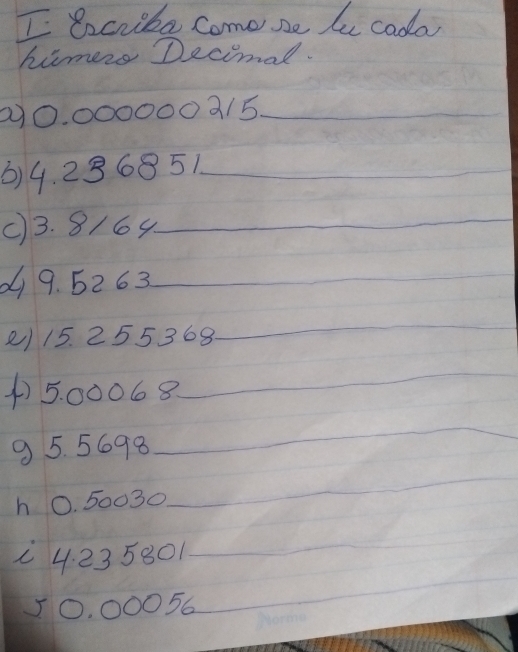 I- Escriba como se lee cada
número Decimal.
a) 0.000000215
b) 4.236851
c) 3.8164
d) 9.5263
e) 15.255368
f) 5.00068
g 5.5698
h 0.50030
i 4.235801
J 0.00056
Norma